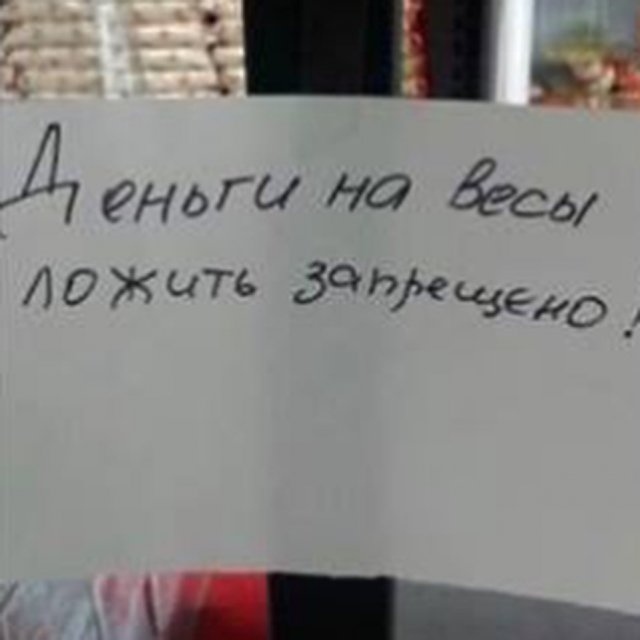 Деньги на весы
ложить запрещено!